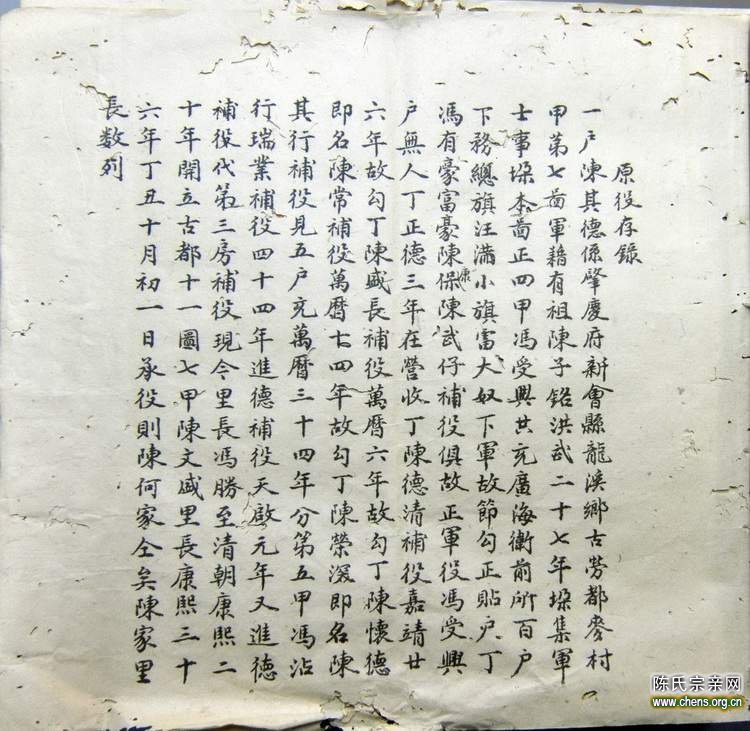 原役存錄
一戶陳其德係肇慶府新會縣龍溪鄉古勞都麥村
甲第七啚軍籍有祖陳子銘洪武二十七年垜集軍
士事垜本啚正四甲馮受興共充廣海衛前所百戶
下務總旗汪滿小旗富大奴下軍故節勾正貼戶丁
馮有豪富豪陳保康陳武仔補役俱故正軍役馮受興
戶無人丁正德三年在營收丁陳德清補役嘉靖廿
六年故勾丁陳盛長補役萬曆六年故勾丁陳懷德
即名陳常補役萬曆十四年故勾丁陳榮滾即名陳
其行補役見五戶充萬曆三十四年分第五甲馮沾
行瑞業補役四十四年進德補役天啟元年又進德
補役代第三房補役現今里長馮勝至清朝康熙二
十年開立古都十一圖七甲陳文盛里長康熙三十
六年丁丑十月初一日承役則陳何家仝矣陳家里
長數列
陈氏宗亲网
www.chens.org.cn